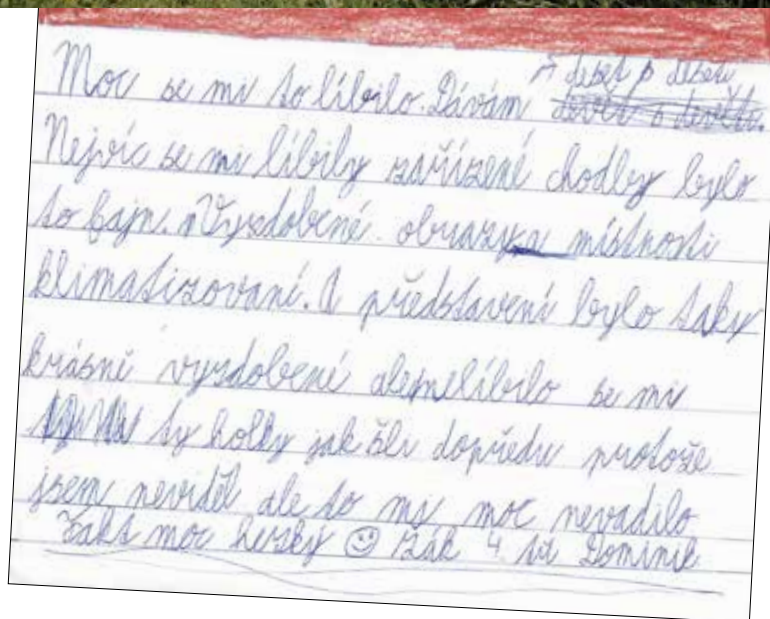 Moc se mi to líbilo. Dávám deset z deseti
Nejvíc se mi líbily zařízené chodby bylo
to fajn. Vyzdobené obrazy a místnosti
klimatizované. A představení bylo taky
krásně vyzdobené ale nelíbilo se mi
ty holky jak šli dopředu protože
jsem neviděl ale to mi moc nevadilo
Fakt moc hezky ☺ žák 4. tř Dominik